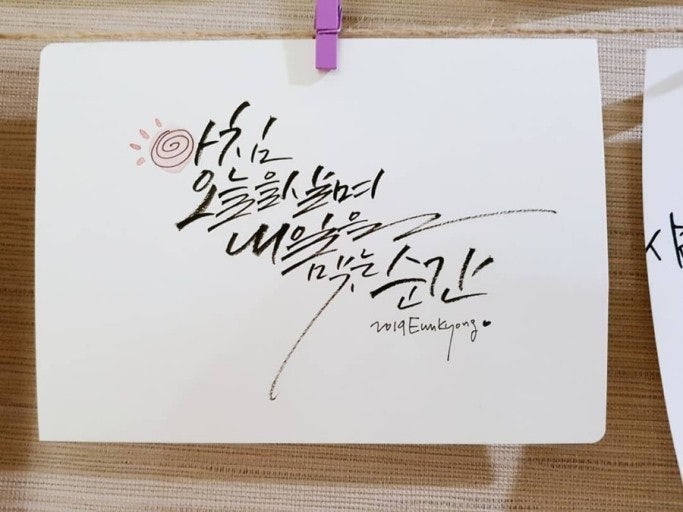 아침
오늘을 살며
내일을
맞는 순간
2019 Eunkyong